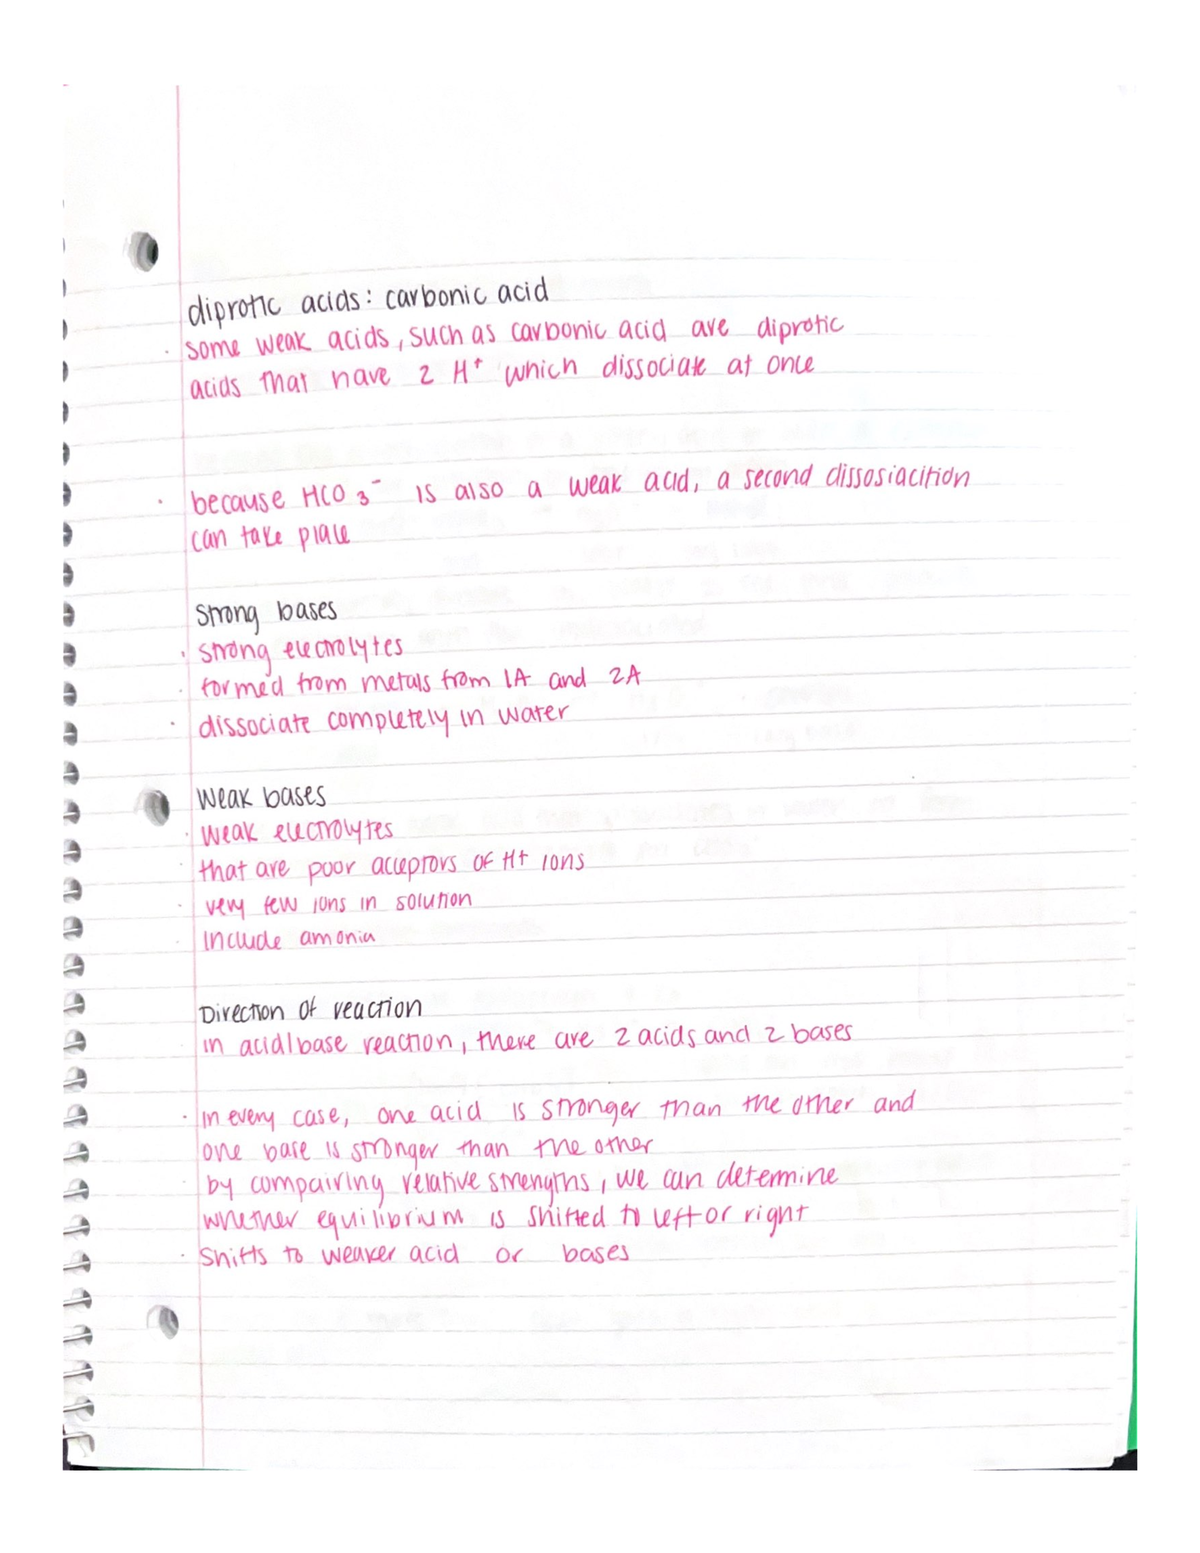 diprotic acids: carbonic acid
· some weak acids, such as carbonic acid are diprotic
acids that have 2 H⁺ which dissociate at once
· because HCO₃⁻ is also a weak acid, a second dissosiacition
can take place
Strong bases
· strong electrolytes
· formed from metals from 1A and 2A
· dissociate completely in water
Weak bases
· weak electrolytes
· that are poor acceptors of H+ ions
· very few ions in solution
· include amonia
Direction of reaction
· in acid/base reaction, there are 2 acids and 2 bases
· in every case, one acid is stronger than the other and
one base is stronger than the other
· by compairing relative strengths, we can determine
whether equilibrium is shifted to left or right
· shifts to weaker acid or bases